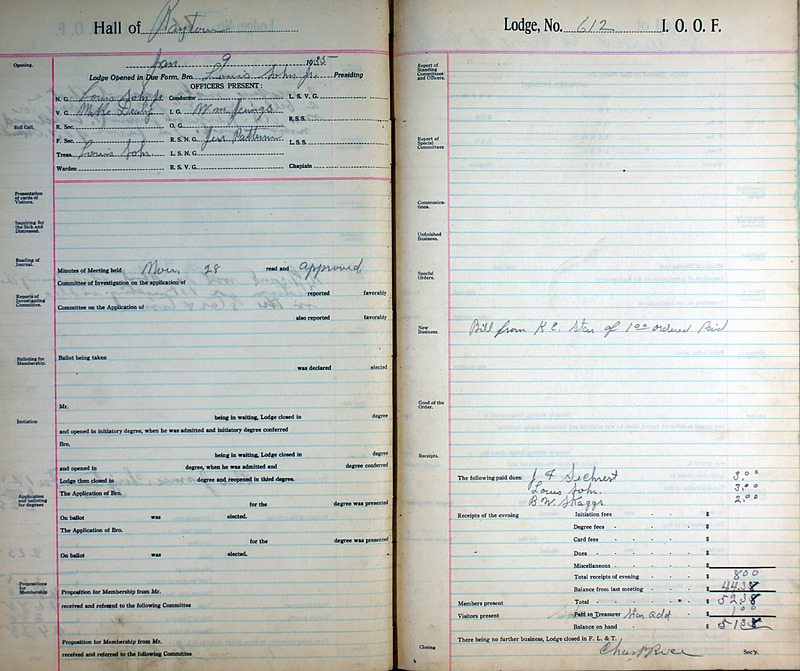 Hall of Raytown
Jan 9 1935
Opening.
Lodge Opened in Due Form, Bro. Louis John Jr. Presiding
OFFICERS PRESENT:
Roll Call.
N. G. Louis John Jr Conductor L. S. V. G.
V. G. Mike I. G. Wm R. S. S.
R. Sec. O. G.
F. Sec. R. S. N. G. Jess L. S. S.
Treas. Louis John L. S. N. G.
Warden R. S. V. G. Chaplain
Presentation of cards of Visitors.
Inquiring for the Sick and Distressed.
Reading of Journal.
Minutes of Meeting held Nov. 28 read and approved,
Committee of Investigation on the application of
Reports of Investigating Committee.
reported favorably
Committee on the Application of
also reported favorably
Balloting for Membership.
Ballot being taken
was declared elected
Mr.
being in waiting, Lodge closed in degree
Initiation
and opened in initiatory degree, when he was admitted and initiatory degree conferred
Bro.
being in waiting, Lodge closed in degree
and opened in degree, when he was admitted and degree conferred
Lodge then closed in degree and reopened in third degree.
Application and balloting for degrees
The Application of Bro.
for the degree was presented
On ballot was elected.
The Application of Bro.
for the degree was presented
On ballot was elected.
Propositions for Membership
Proposition for Membership from Mr.
received and referred to the following Committee
Proposition for Membership from Mr.
received and referred to the following Committee
Lodge, No. 612 I. O. O. F.
Report of Standing Committees and Officers.
Report of Special Committees
Communications.
Unfinished Business.
Special Orders.
New Business.
Bill from K.C. Star of 1.00 ordered Paid
Good of the Order.
Receipts.
The following paid dues: J F Sechrest 3.00
Louis John. 3.00
B. W. Skaggs 2.00
Receipts of the evening Initiation fees $
Degree fees $
Card fees $
Dues $
Miscellaneous $
Total receipts of evening $ 8 00
Balance from last meeting $ 44.38
Members present Total $ 52.38
Visitors present Paid to Treasurer Star add $ 1 00
Balance on hand $ 51 38
There being no further business, Lodge closed in F. L. & T.
Closing
Chas P Rice Sec'y.